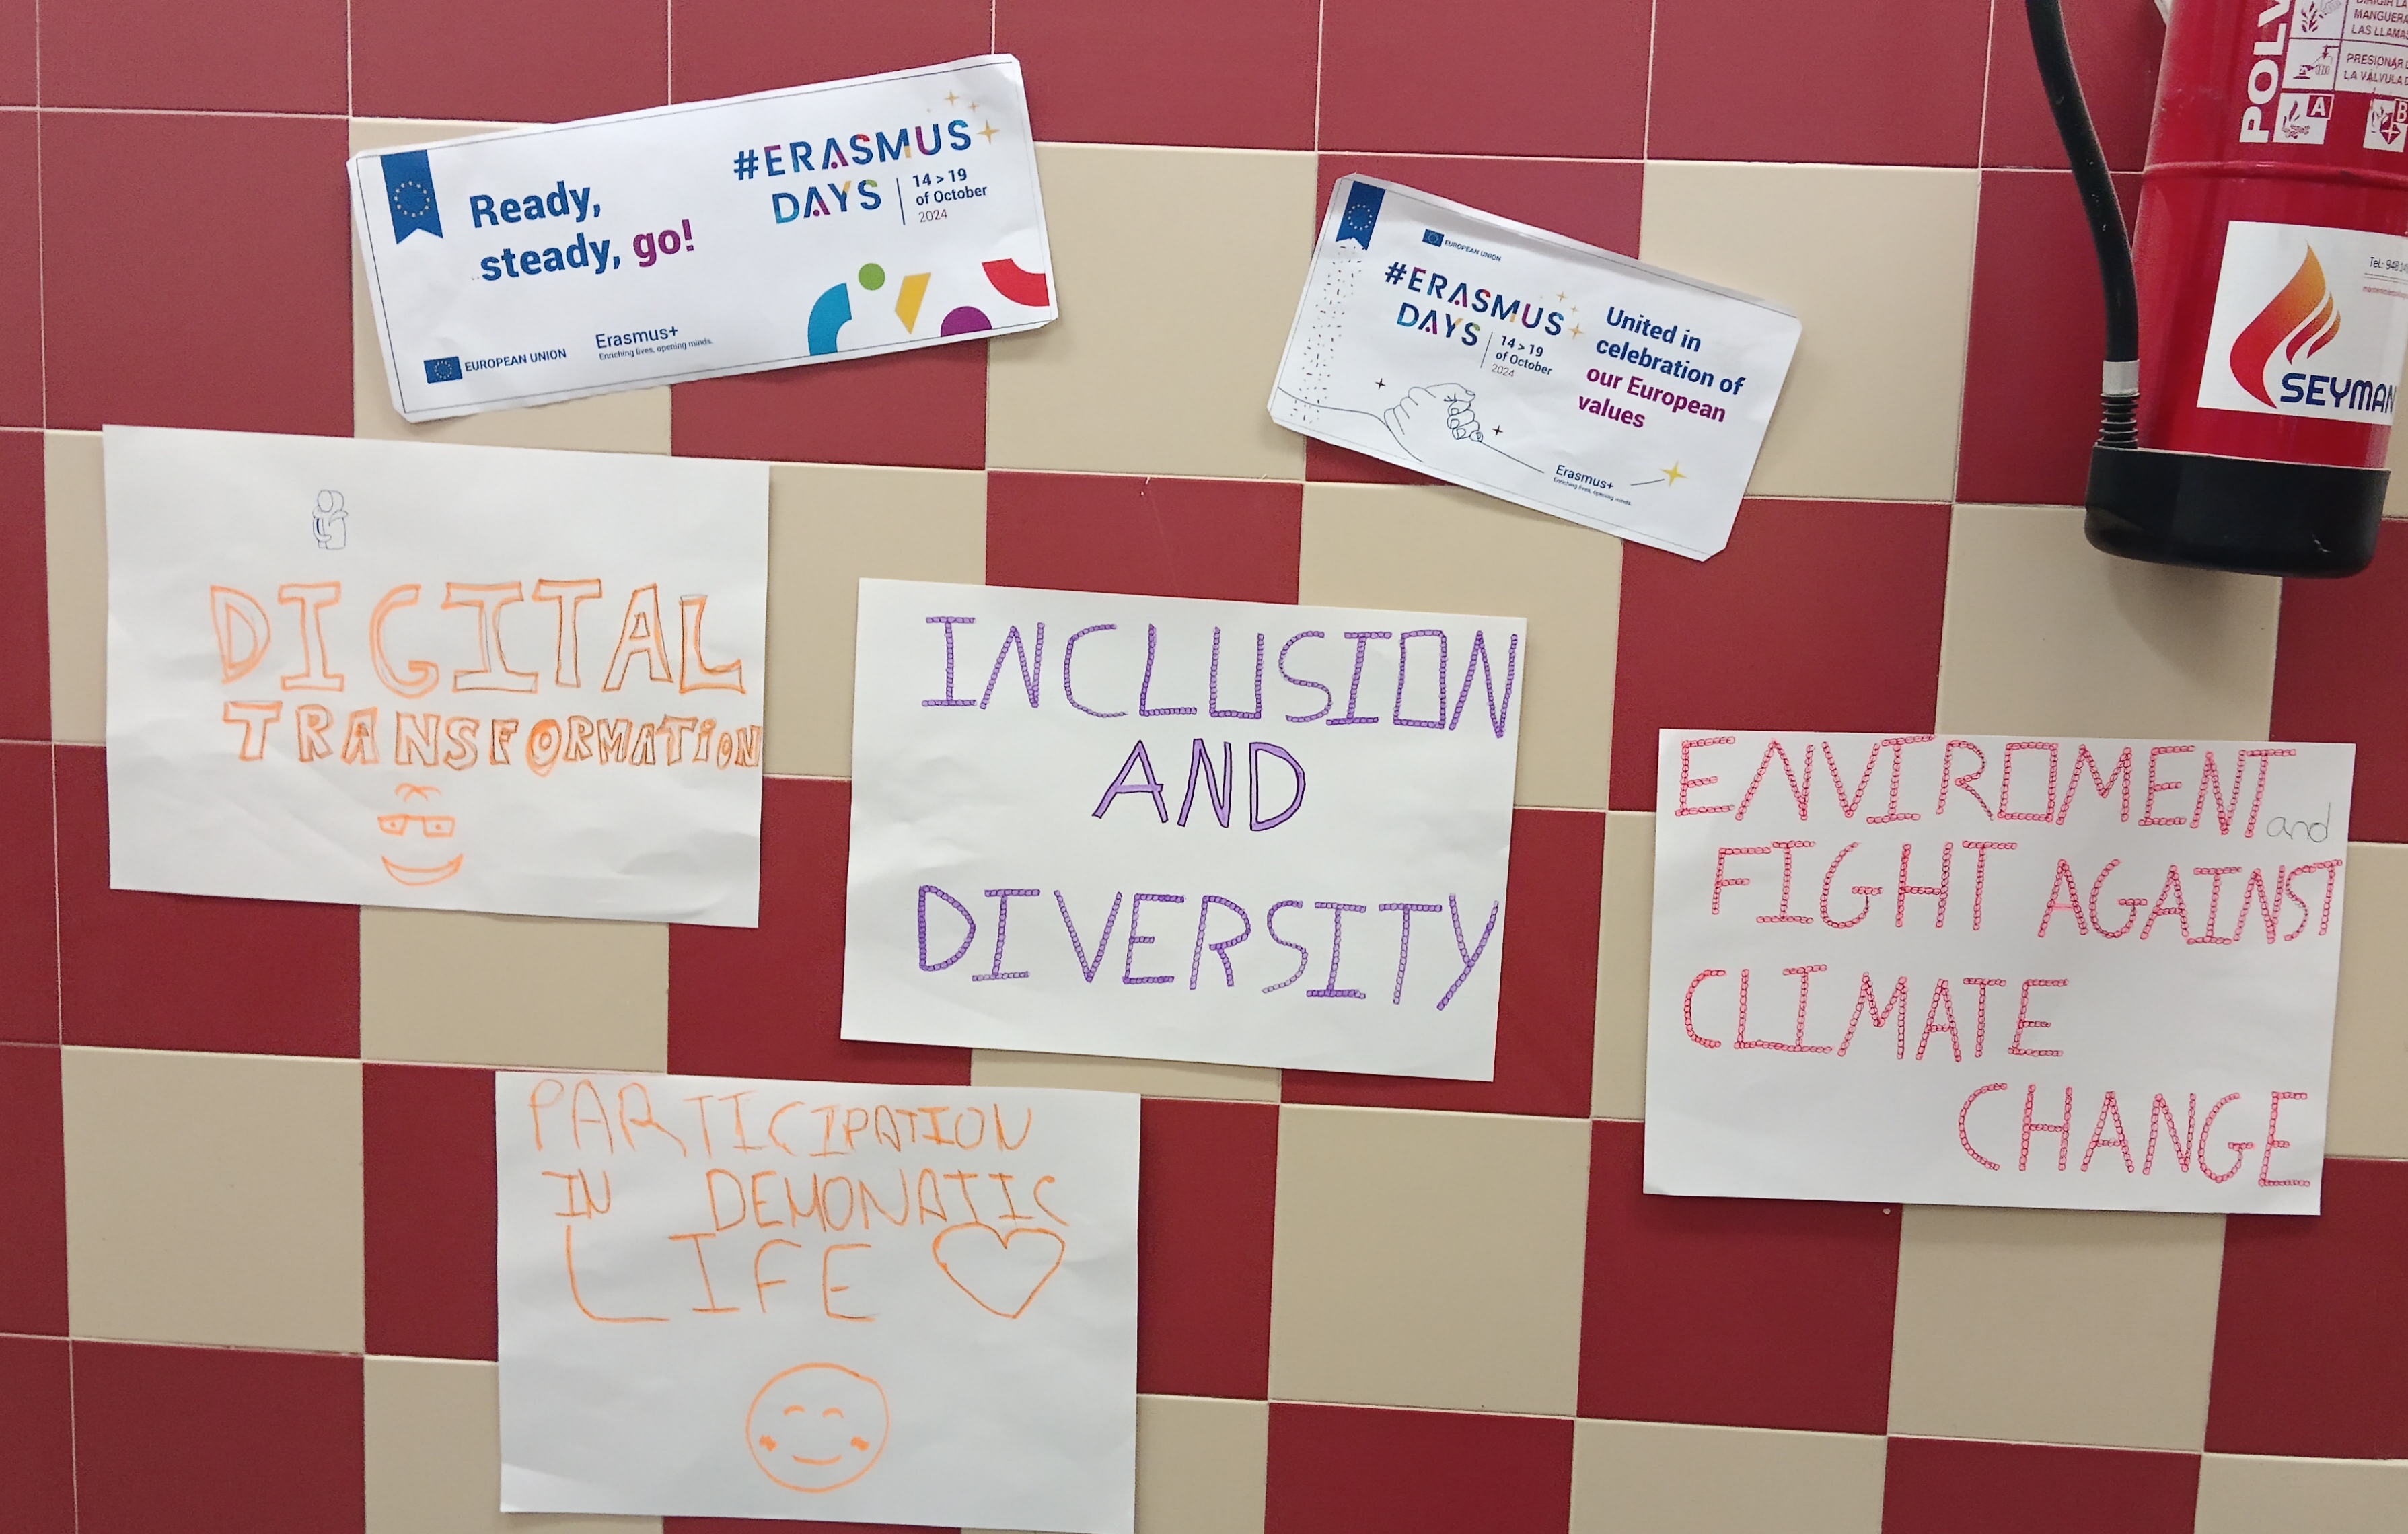 Ready,
steady, go!
#ERASMUS
DAYS
14 > 19
of October
2024
EUROPEAN UNION
Erasmus+
Enriching lives, opening minds.
EUROPEAN UNION
#ERASMUS
DAYS
14 > 19
of October
2024
United in
celebration of
our European
values
Erasmus+
Enriching lives, opening minds.
POLV
MANGUERA
LAS LLAMAS
PRESIONAR
LA VALVULA D
A
B
SEYMAN
DIGITAL
TRANSFORMATION
INCLUSION
AND
DIVERSITY
ENVIROMENT and
FIGHT AGAINST
CLIMATE
CHANGE
PARTICIPATION
IN DEMONATIC
LIFE